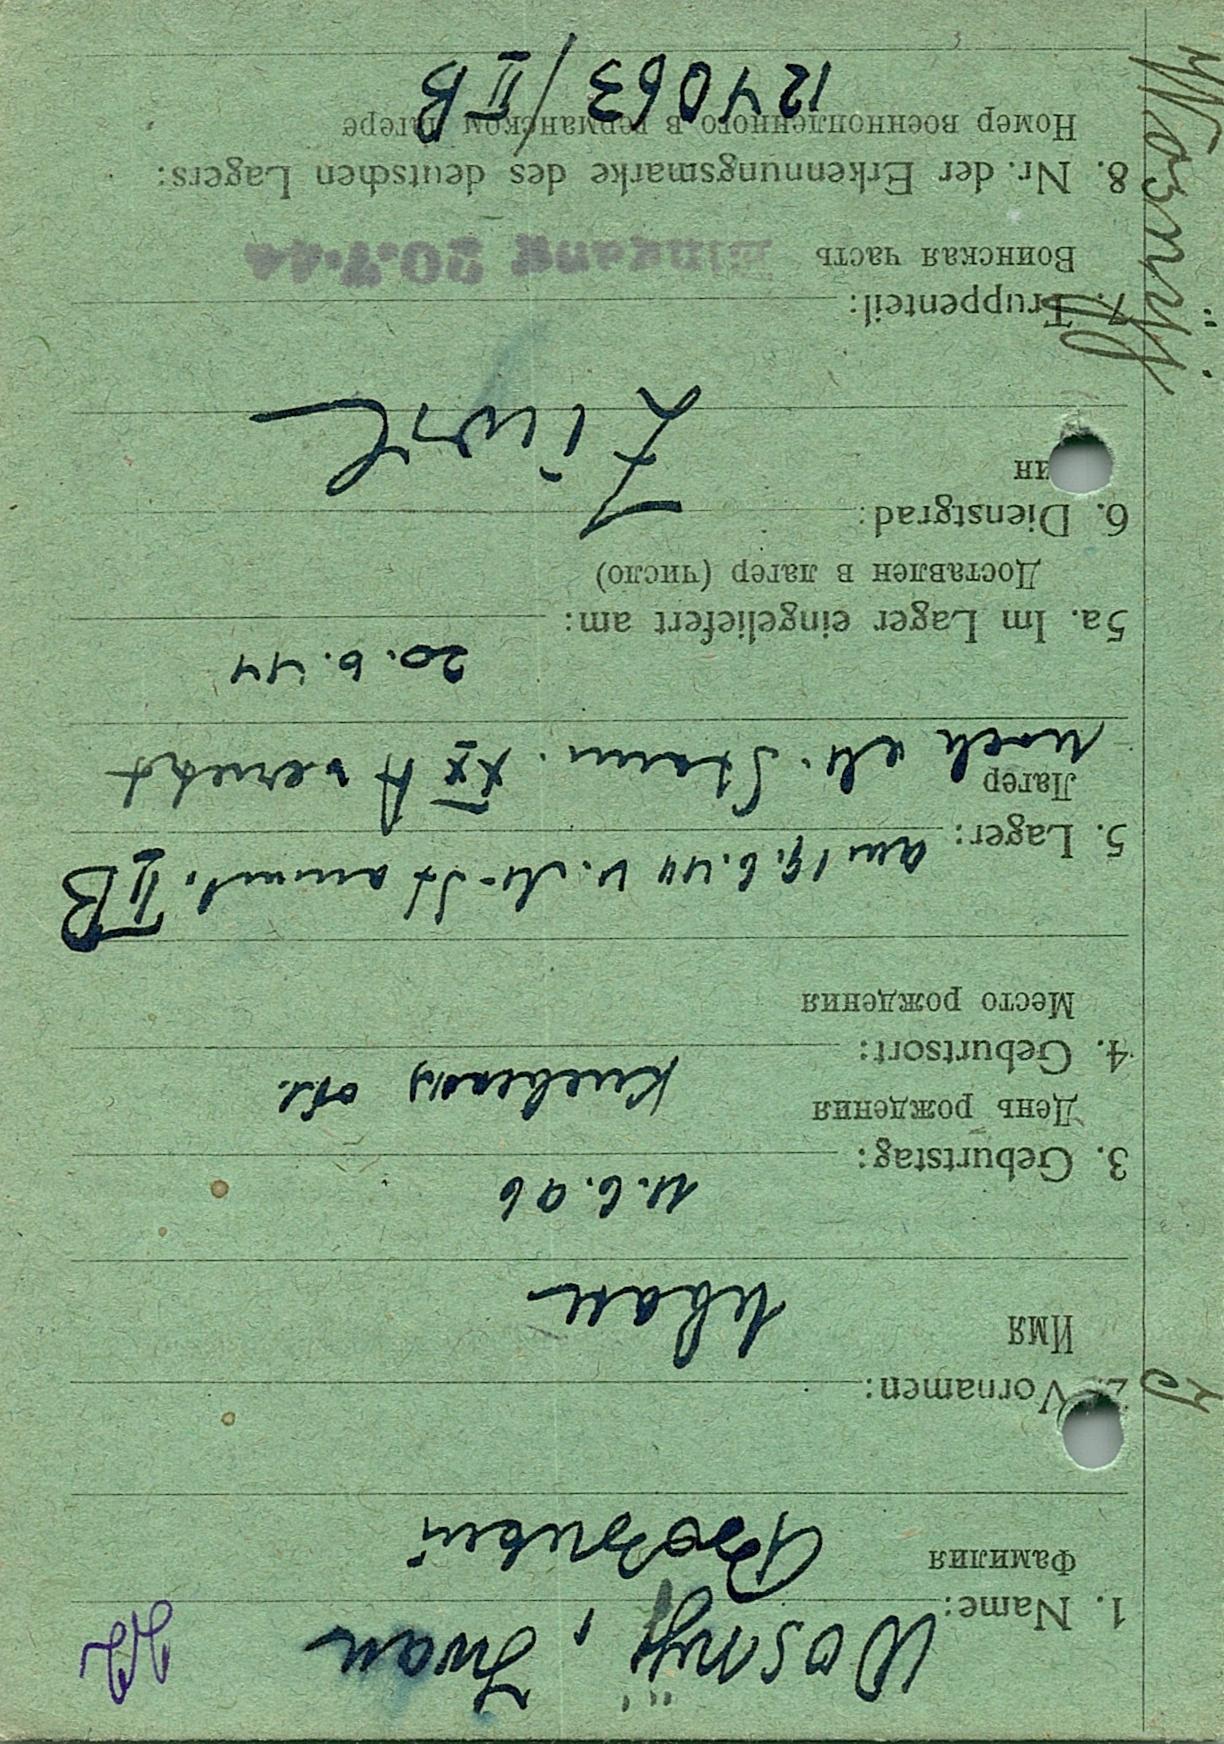 Wosnÿj, Iwan
1. Name:
Фамилия Возный
2. Vornamen:
Имя Иван
3. Geburtstag: 11.6.96
День рождения
4. Geburtsort: Киевский обл.
Место рождения
5. Lager: am 19.6.44 v. M.-Stamml. II B
Лагер nach M.-Stam. XX A versetzt
5a. Im Lager eingeliefert am: 20.6.44
Доставлен в лагер (число)
6. Dienstgrad: Zivil
ин
7. Truppenteil:
Воинская часть Eingang 20.7.44
8. Nr. der Erkennungsmarke des deutschen Lagers:
Номер военнопленного в германском лагере
124063/II B
Wosnÿj